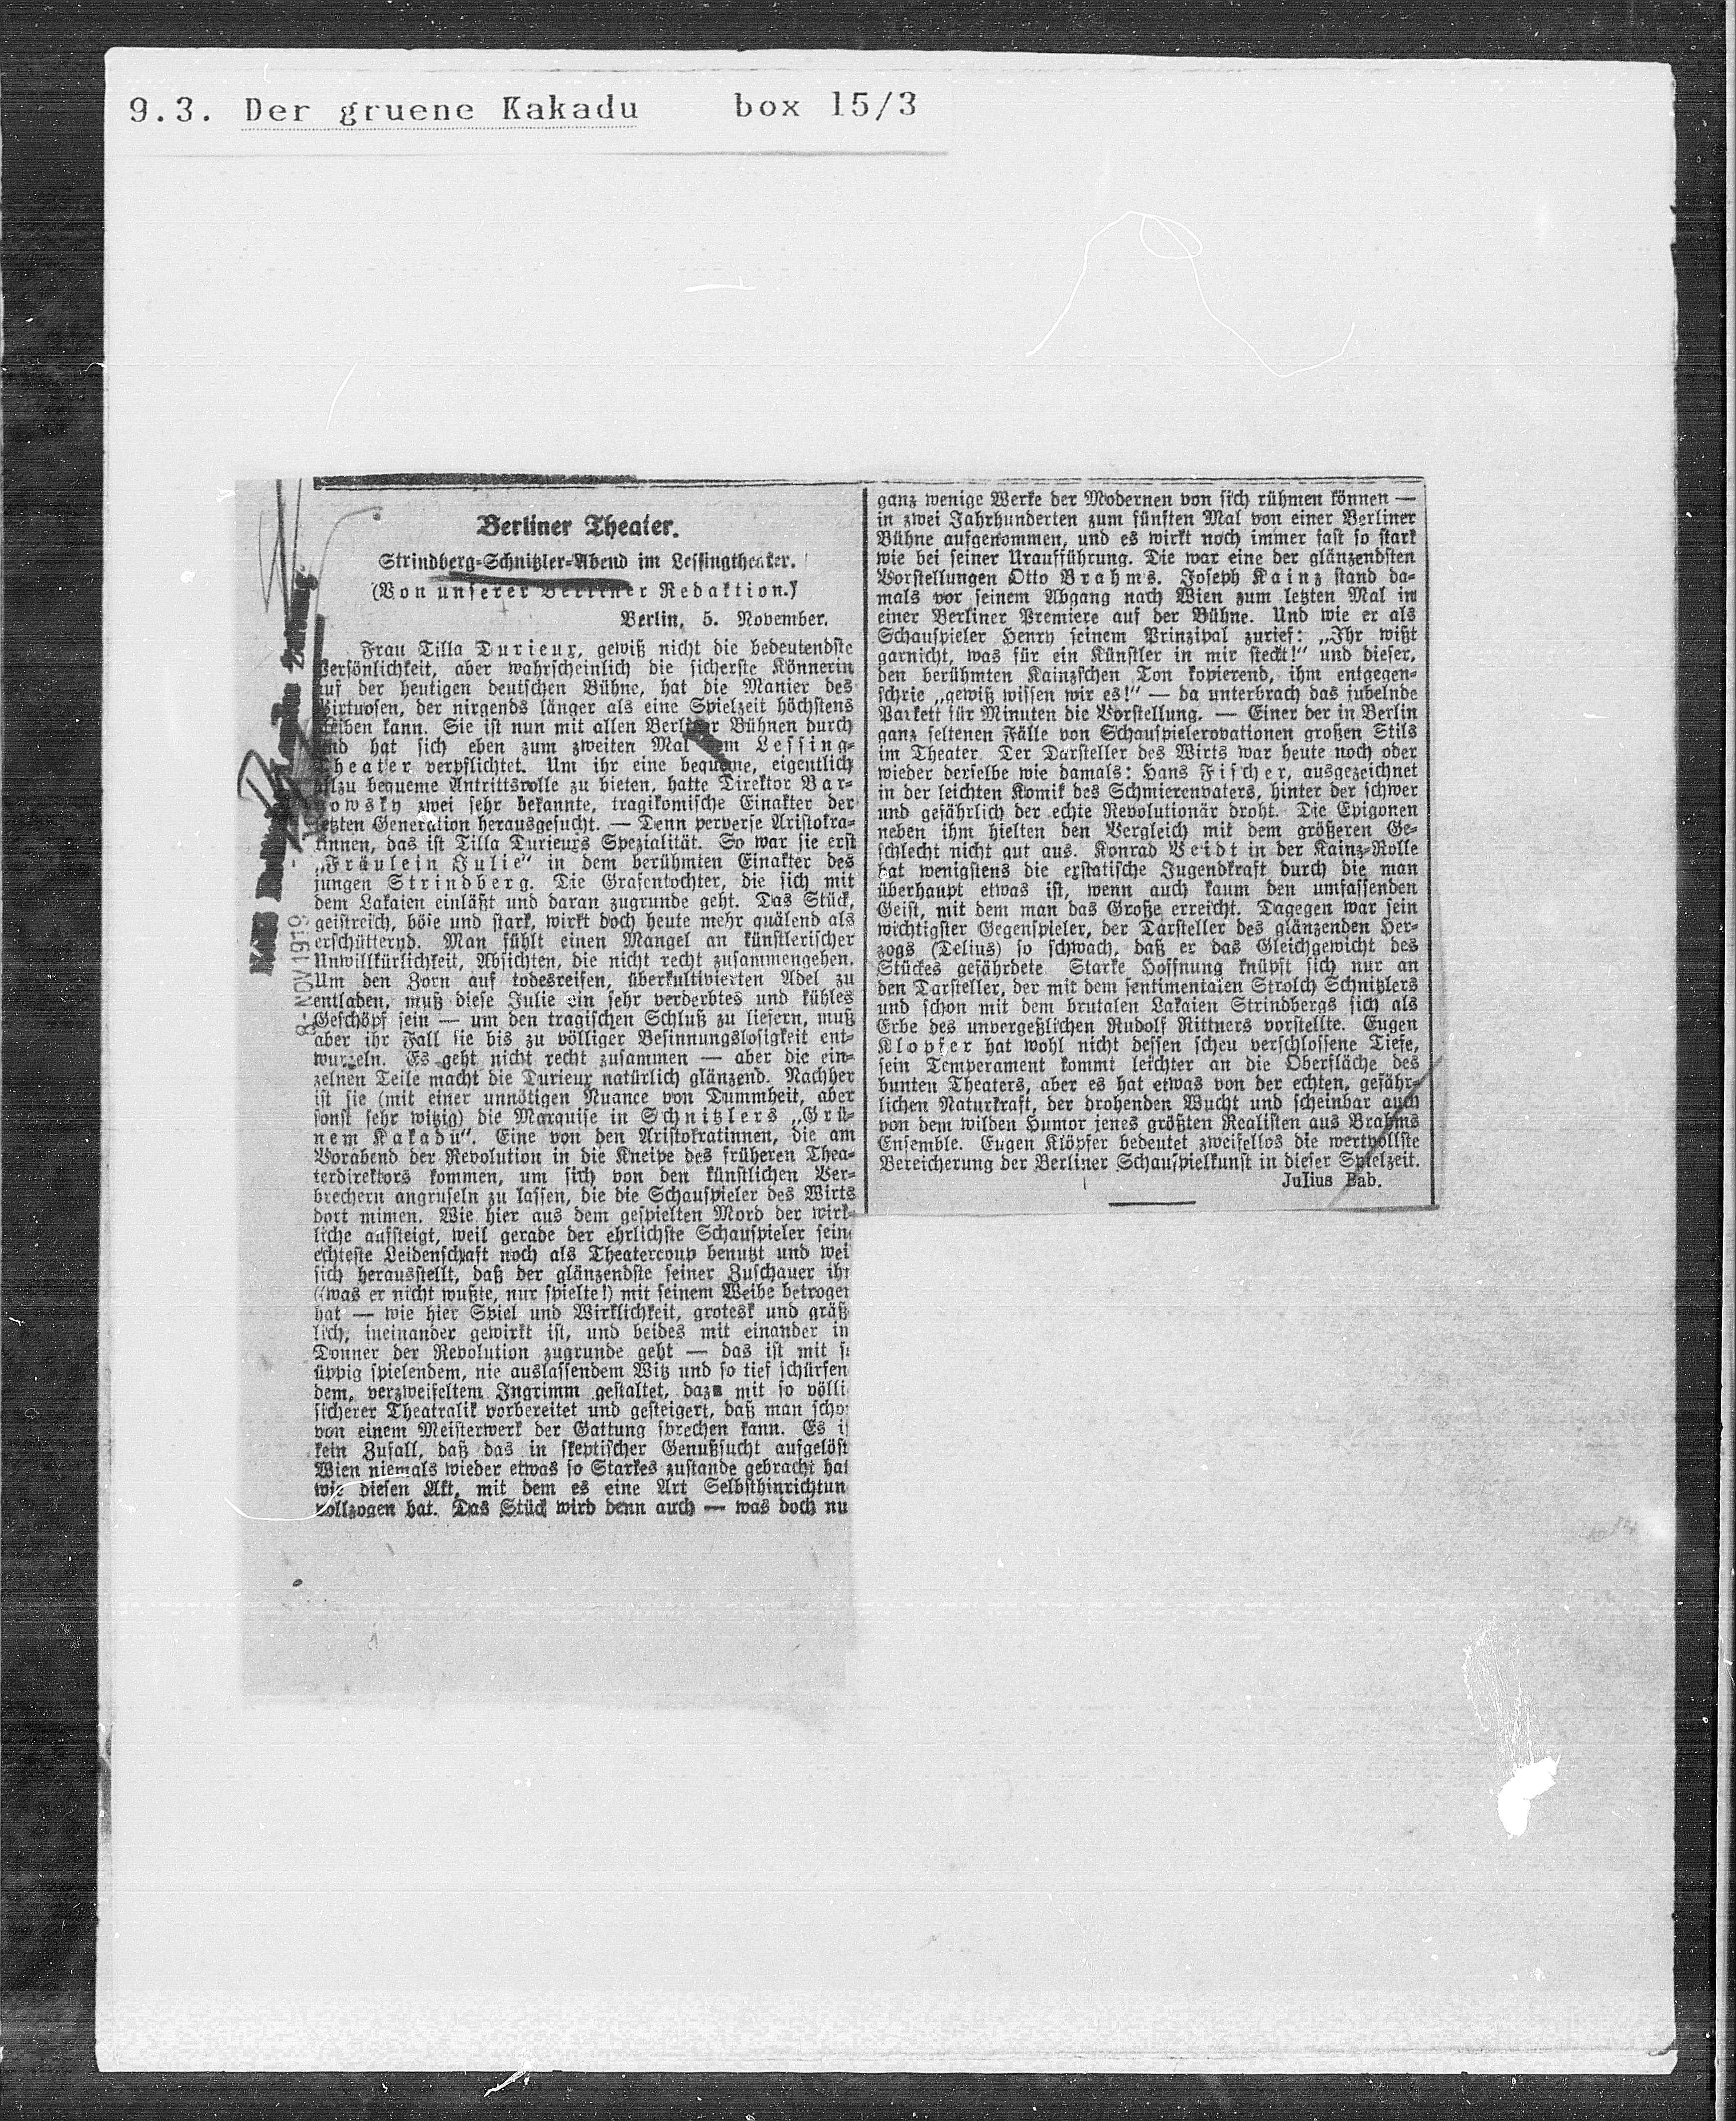 9.3. Der gruene Kakadu box 15/3
8-NOV 1919
Berliner Theater.
Strindberg-Schnitzler-Abend im Lessingtheater.
(Von unserer Berliner Redaktion.)
Berlin, 5. November.
Frau Tilla Durieux, gewiß nicht die bedeutendste
Persönlichkeit, aber wahrscheinlich die sicherste Könnerin
auf der heutigen deutschen Bühne, hat die Manier des
Virtuosen, der nirgends länger als eine Spielzeit höchstens
bleiben kann. Sie ist nun mit allen Berliner Bühnen durch
und hat sich eben zum zweiten Mal dem Lessing-
theater verpflichtet. Um ihr eine bequeme, eigentlich
allzu bequeme Antrittsrolle zu bieten, hatte Direktor Bar-
nowsky zwei sehr bekannte, tragikomische Einakter der
letzten Generation herausgesucht. — Denn perverse Aristokra-
tinnen, das ist Tilla Durieuxs Spezialität. So war sie erst
„Fräulein Julie“ in dem berühmten Einakter des
jungen Strindberg. Die Grafentochter, die sich mit
dem Lakaien einläßt und daran zugrunde geht. Das Stück,
geistreich, böse und stark, wirkt doch heute mehr quälend als
erschütternd. Man fühlt einen Mangel an künstlerischer
Unwillkürlichkeit, Absichten, die nicht recht zusammengehen.
Um den Zorn auf todesreifen, überkultivierten Adel zu
entladen, muß diese Julie ein sehr verderbtes und kühles
Geschöpf sein — um den tragischen Schluß zu liefern, muß
aber ihr Fall sie bis zu völliger Besinnungslosigkeit ent-
wurzeln. Es geht nicht recht zusammen — aber die ein-
zelnen Teile macht die Durieux natürlich glänzend. Nachher
ist sie (mit einer unnötigen Nuance von Dummheit, aber
sonst sehr witzig) die Marquise in Schnitzlers „Grü-
nem Kakadu“. Eine von den Aristokratinnen, die am
Vorabend der Revolution in die Kneipe des früheren Thea-
terdirektors kommen, um sich von den künstlichen Ver-
brechern angruseln zu lassen, die die Schauspieler des Wirts
dort mimen. Wie hier aus dem gespielten Mord der wirk-
liche aufsteigt, weil gerade der ehrlichste Schauspieler sein
echteste Leidenschaft noch als Theatercoup benutzt und wei
sich herausstellt, daß der glänzendste seiner Zuschauer ihr
(was er nicht wußte, nur spielte!) mit seinem Weibe betroger
hat — wie hier Spiel und Wirklichkeit, grotesk und gräß
lich, ineinander gewirkt ist, und beides mit einander in
Donner der Revolution zugrunde geht — das ist mit s
üppig spielendem, nie auslassendem Witz und so tief schürfen
dem, verzweifeltem Ingrimm gestaltet, dazu mit so völli
sicherer Theatralik vorbereitet und gesteigert, daß man scho
von einem Meisterwerk der Gattung sprechen kann. Es i
kein Zufall, daß das in skeptischer Genußsucht aufgelöst
Wien niemals wieder etwas so Starkes zustande gebracht hat
wie diesen Akt, mit dem es eine Art Selbsthinrichtun
vollzogen hat. Das Stück wird denn auch — was doch nu
ganz wenige Werke der Modernen von sich rühmen können —
in zwei Jahrhunderten zum fünften Mal von einer Berliner
Bühne aufgenommen, und es wirkt noch immer fast so stark
wie bei seiner Uraufführung. Die war eine der glänzendsten
Vorstellungen Otto Brahms. Joseph Kainz stand da-
mals vor seinem Abgang nach Wien zum letzten Mal in
einer Berliner Premiere auf der Bühne. Und wie er als
Schauspieler Henry seinem Prinzipal zurief: „Ihr wißt
garnicht, was für ein Künstler in mir steckt!“ und dieser,
den berühmten Kainzschen Ton kopierend, ihm entgegen-
schrie „gewiß wissen wir es!“ — da unterbrach das jubelnde
Parkett für Minuten die Vorstellung. — Einer der in Berlin
ganz seltenen Fälle von Schauspielerovationen großen Stils
im Theater. Der Darsteller des Wirts war heute noch oder
wieder derselbe wie damals: Hans Fischer, ausgezeichnet
in der leichten Komik des Schmierenvaters, hinter der schwer
und gefährlich der echte Revolutionär droht. Die Epigonen
neben ihm hielten den Vergleich mit dem größeren Ge-
schlecht nicht gut aus. Konrad Veidt in der Kainz-Rolle
hat wenigstens die exstatische Jugendkraft durch die man
überhaupt etwas ist, wenn auch kaum den umfassenden
Geist, mit dem man das Große erreicht. Dagegen war sein
wichtigster Gegenspieler, der Darsteller des glänzenden Her-
zogs (Delius) so schwach, daß er das Gleichgewicht des
Stückes gefährdete. Starke Hoffnung knüpft sich nur an
den Darsteller, der mit dem sentimentalen Strolch Schnitzlers
und schon mit dem brutalen Lakaien Strindbergs sich als
Erbe des unvergeßlichen Rudolf Rittners vorstellte. Eugen
Klopfer hat wohl nicht dessen scheu verschlossene Tiefe,
sein Temperament kommt leichter an die Oberfläche des
bunten Theaters, aber es hat etwas von der echten, gefähr-
lichen Naturkraft, der drohenden Wucht und scheinbar auch
von dem wilden Humor jenes größten Realisten aus Brahms
Ensemble. Eugen Klöpfer bedeutet zweifellos die wertvollste
Bereicherung der Berliner Schauspielkunst in dieser Spielzeit.
Julius Bab.